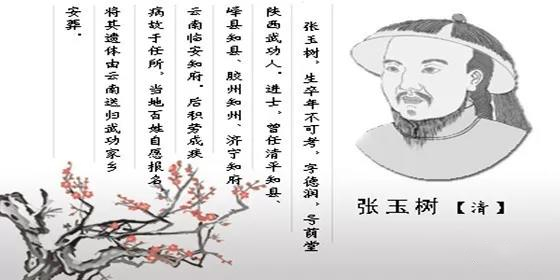 张玉树，生卒年不可考，字德润，号荫堂
陕西武功人。进士，曾任清平知县、
峄县知县、胶州知州、济宁知府
云南临安知府。后积劳成疾
病故于任所，当地百姓自愿报名
将其遗体由云南送归武功家乡
安葬。
张玉树【清】